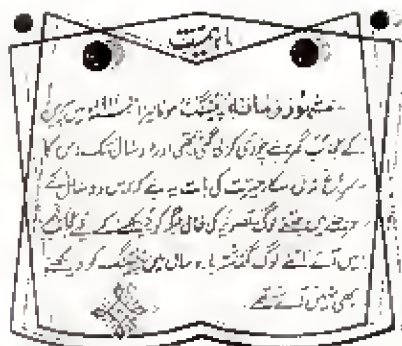 اہمیت
مشہور زمانہ پینٹنگ مونا لیزا ۱۹۱۱ء میں پیرس
کے عجائب گھر سے چوری کی گئی تھی اور دو سال تک اس کا
سراغ نہ مل سکا۔ حیرت کی بات یہ ہے کہ ان دو سال کے
عرصے میں جتنے لوگ تصویر کی خالی جگہ کو دیکھنے کے لیے
میں آئے اتنے لوگ گزشتہ بارہ سال میں پینٹنگ کو دیکھنے
بھی نہیں آئے تھے۔